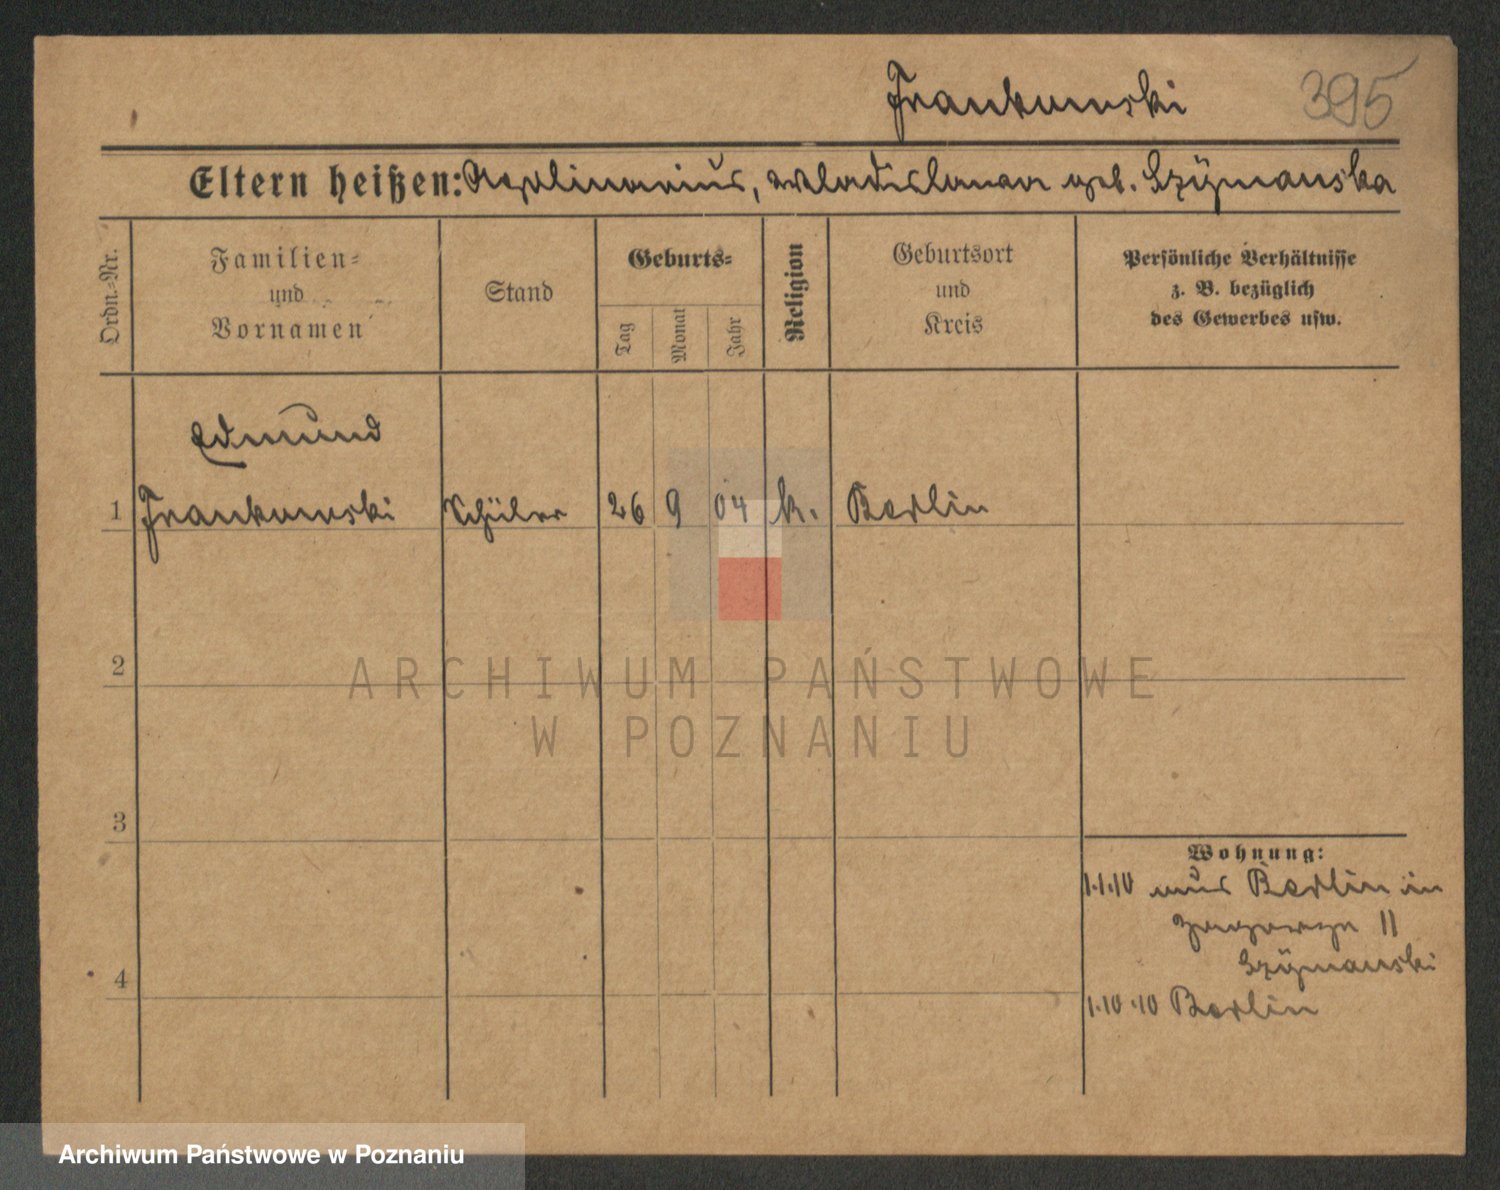 Frankowski 395
Eltern heißen: Apolinarius, Wladislawa geb. Szÿmanska
Ordn.-Nr.
Familien-
und
Vornamen
Stand
Geburts-
Tag
Monat
Jahr
Religion
Geburtsort
und
Kreis
Persönliche Verhältnisse
z. B. bezüglich
des Gewerbes usw.
Edmund
1 Frankowski Schüler 26 9 04 k. Berlin
2
3
4
Wohnung:
1.1.10 aus Berlin in
II
Szÿmanski
1.10.10 Berlin
ARCHIWUM PAŃSTWOWE
W POZNANIU
Archiwum Państwowe w Poznaniu